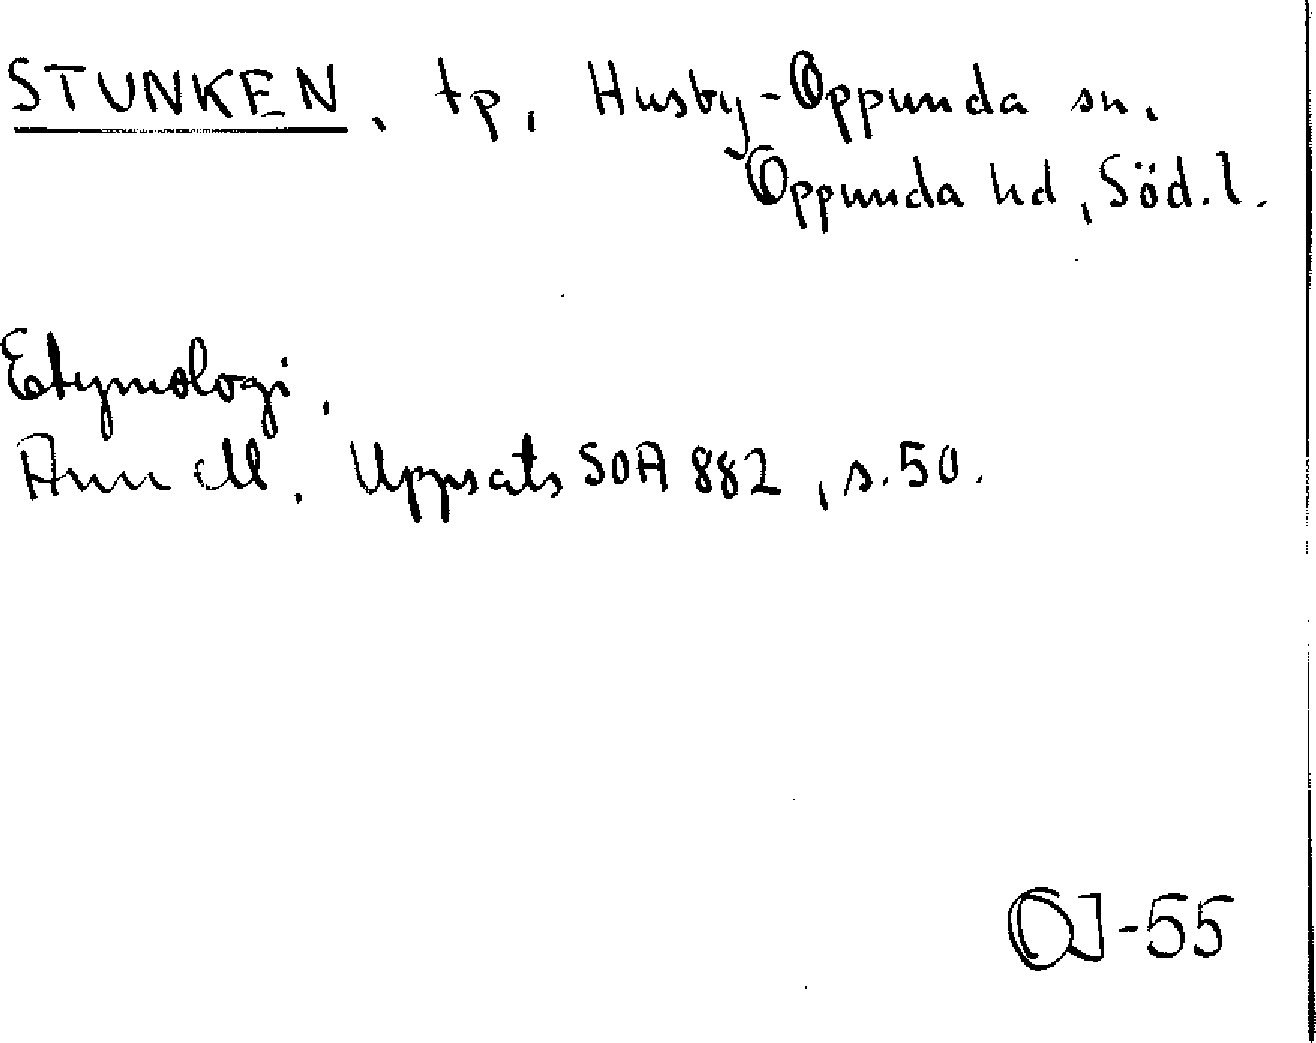 STUNKEN, tp, Husby-Oppunda sn.
Oppunda hd, Söd.l.
Etymologi.
Uppsats SOA 882, s.50.
OJ-55